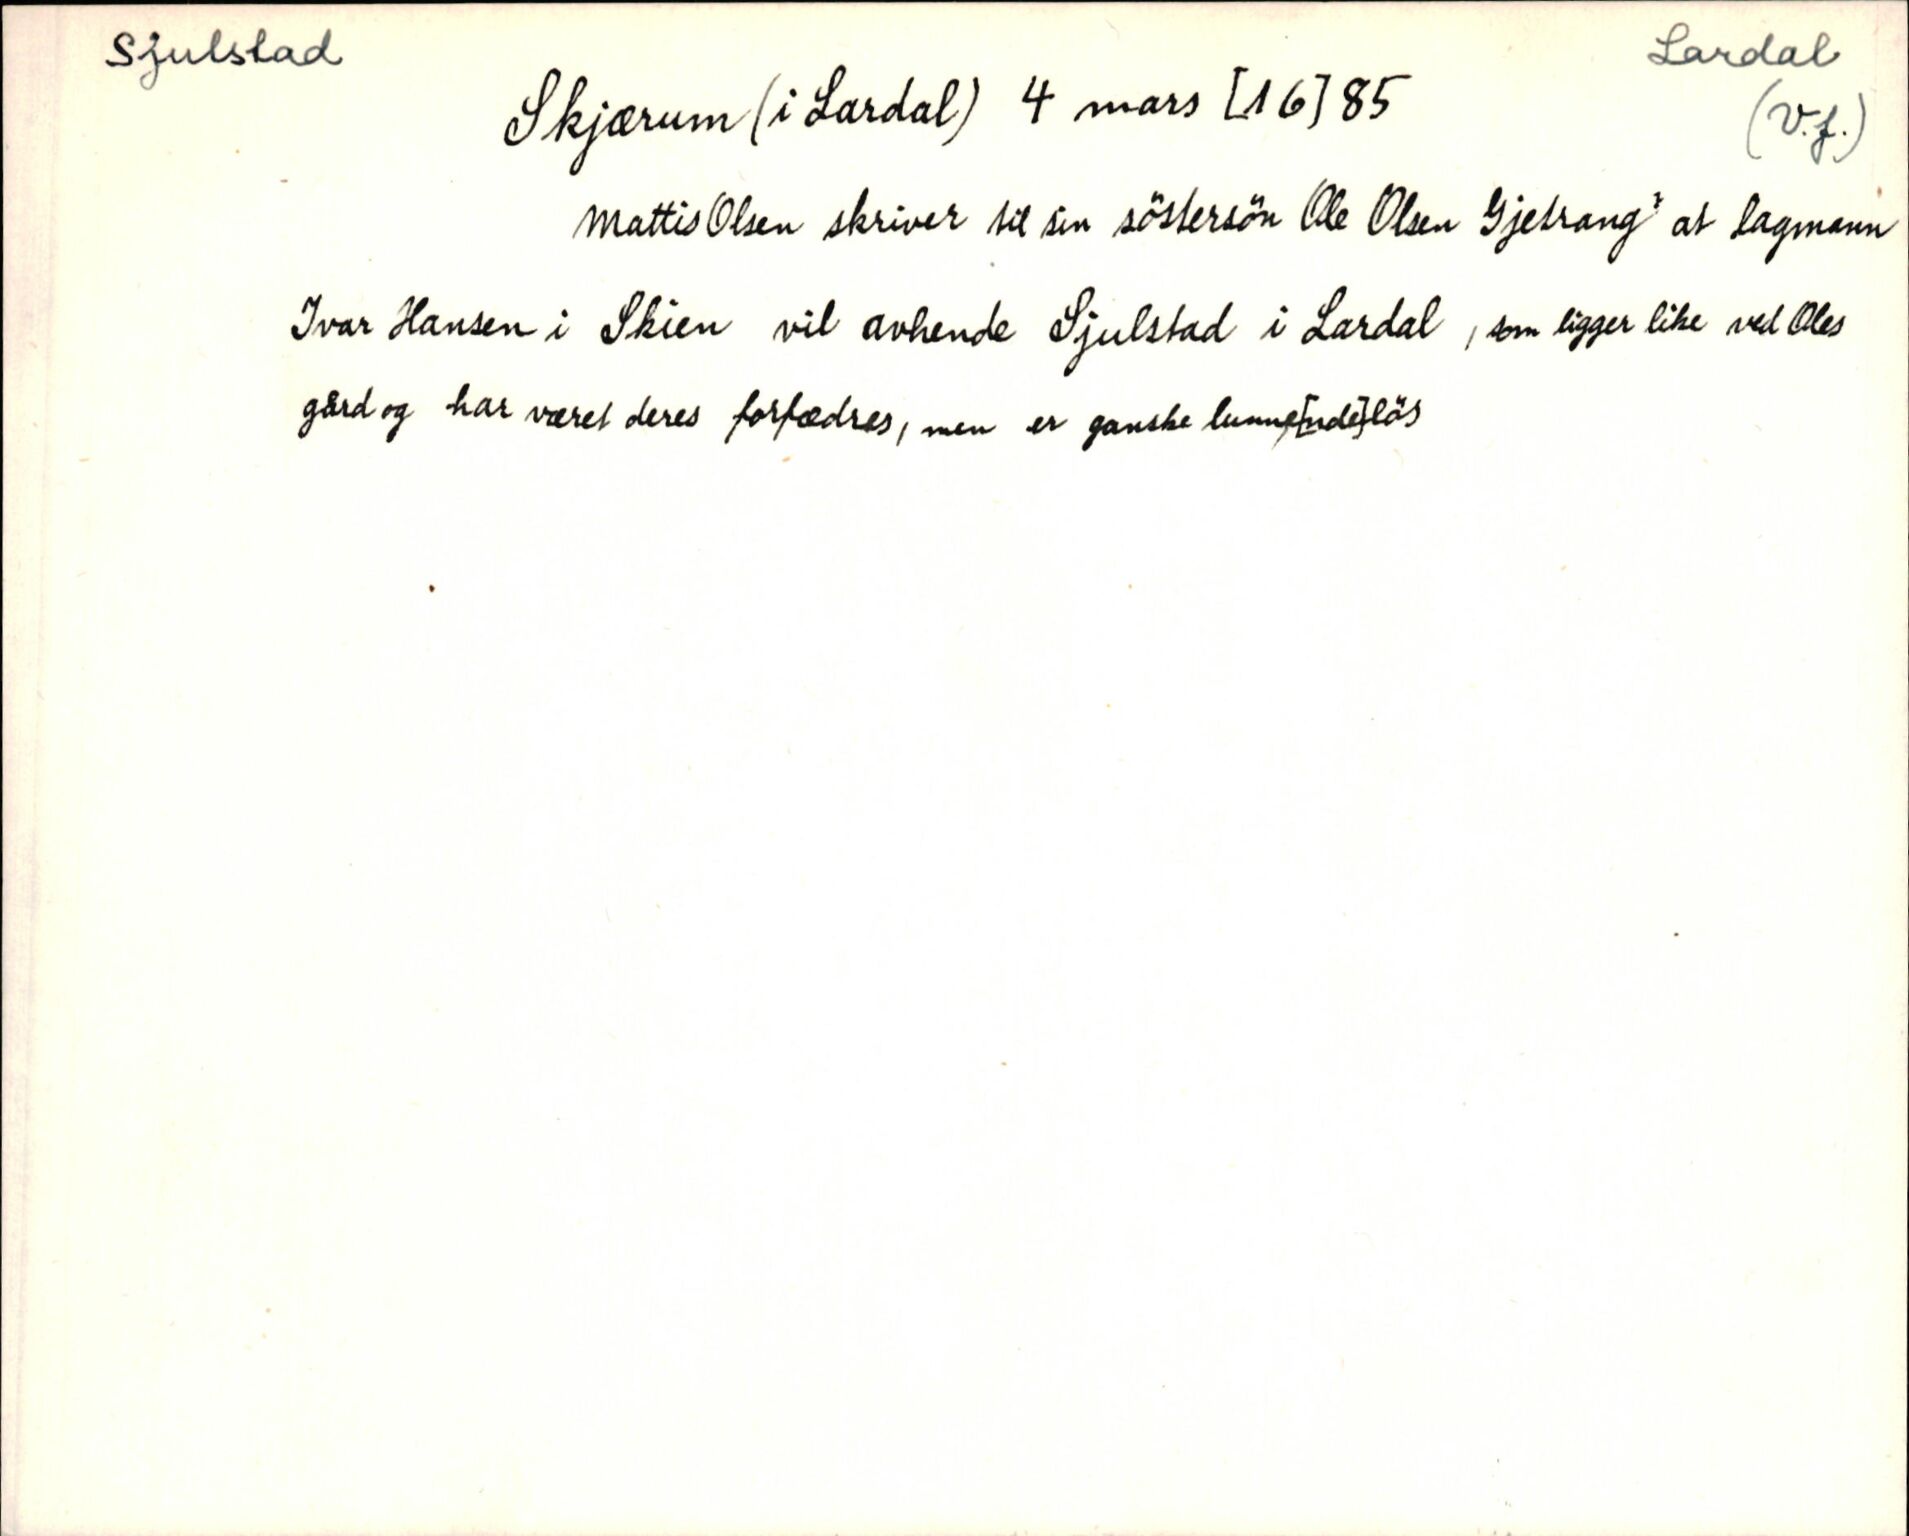 Sjulstad
Lardal
(V.f.)
Skjærum (i Lardal) 4 mars [16]85
Mattis Olsen skriver til sin söstersön Ole Olsen Gjetrang? at lagmann
Ivar Hansen i Skien vil avhende Sjulstad i Lardal, som ligger like ved Oles
gård og har været deres forfædres, men er ganske lunne[nde]lös